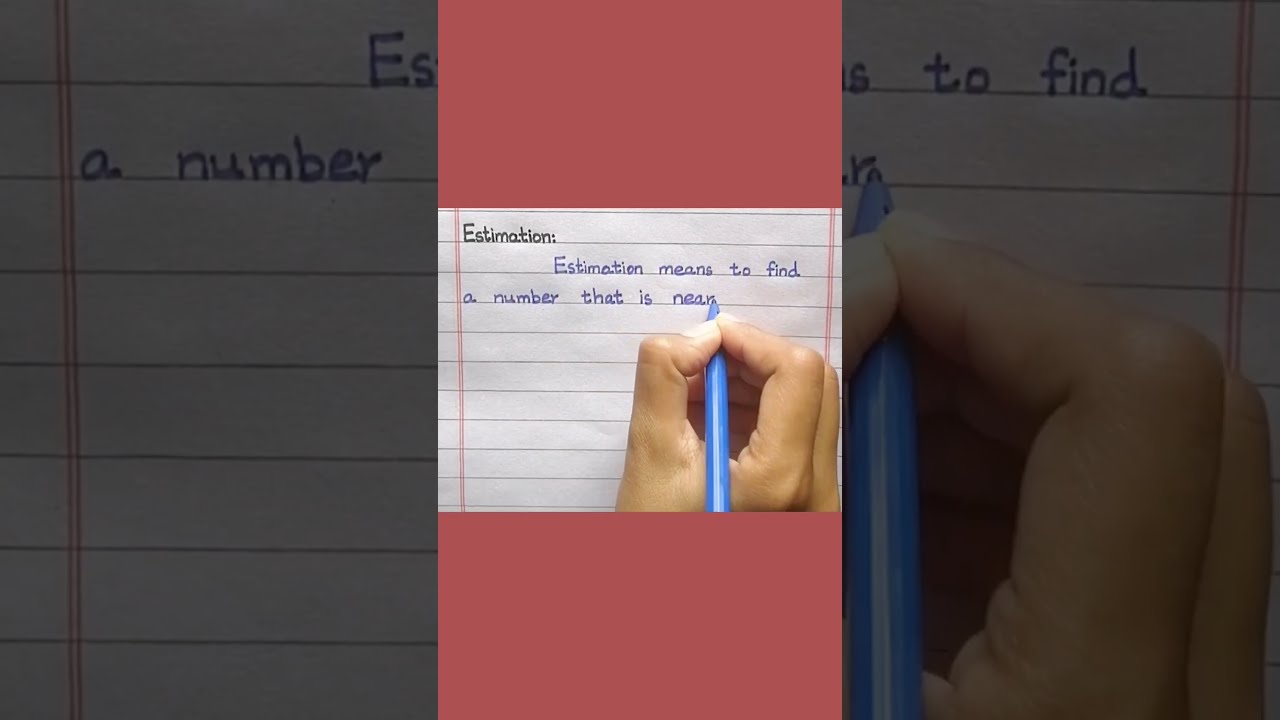 Estimation:
Estimation means to find
a number that is near